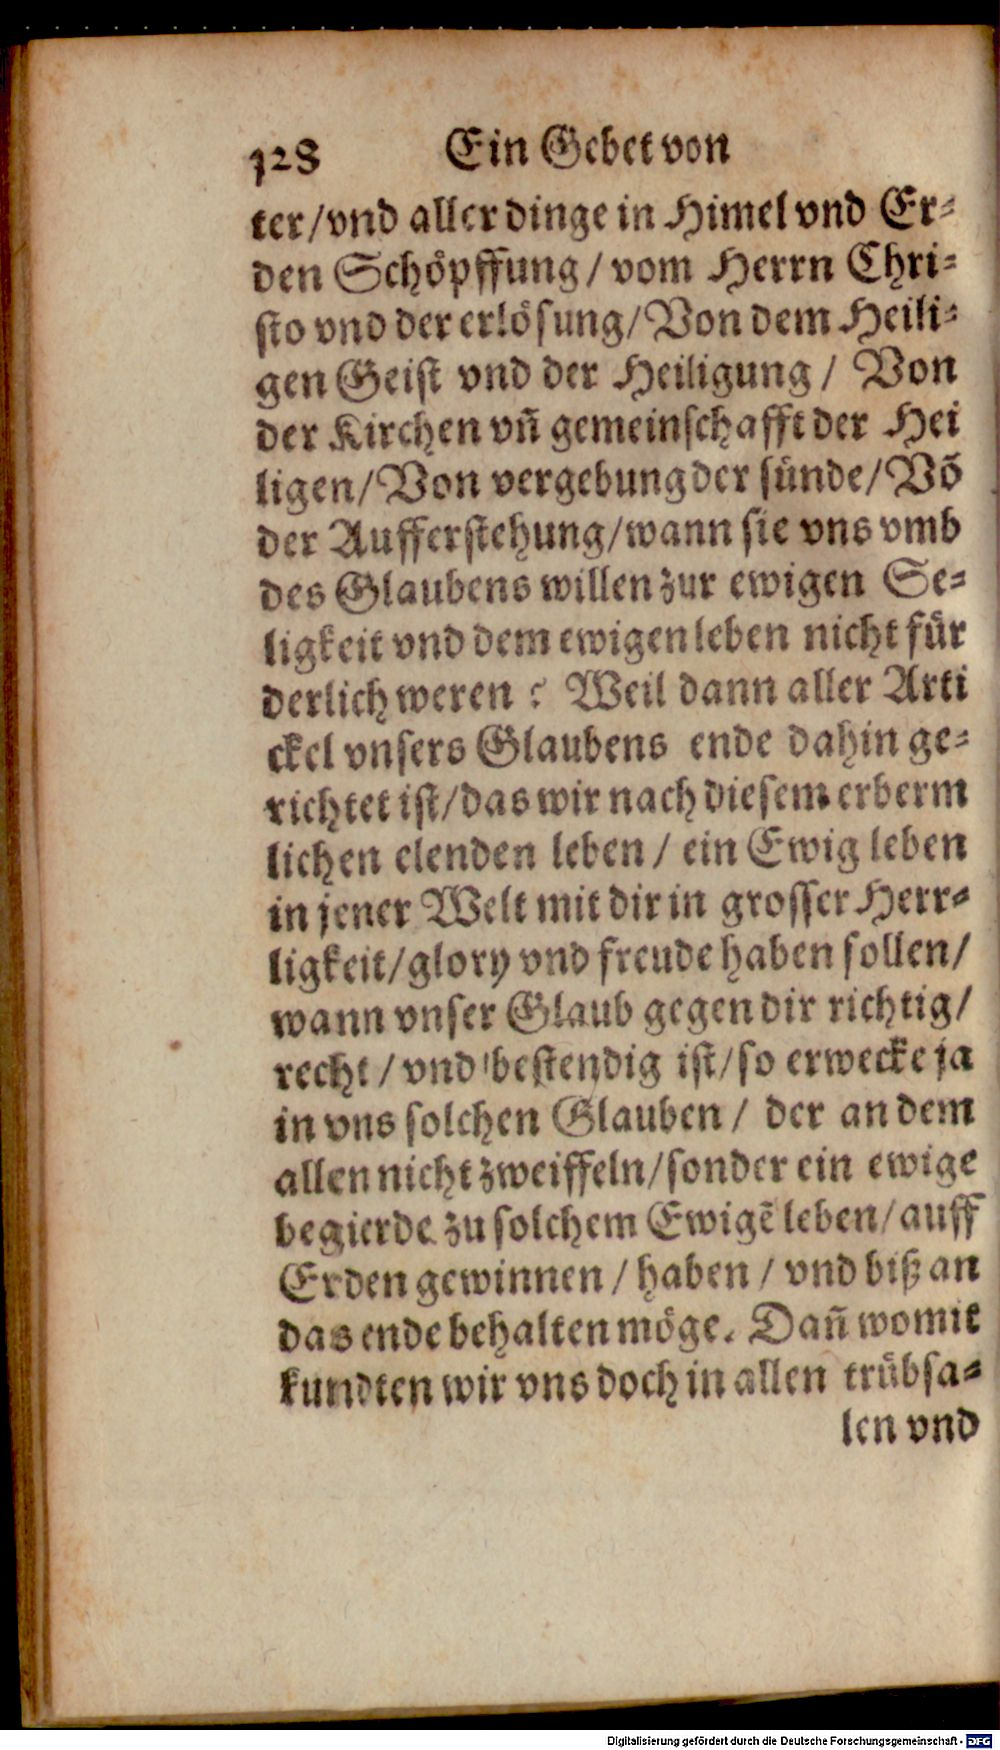 128 Ein Gebet von
ter/vnd aller dinge in Himel vnd Er⸗
den Schöpffung/ vom Herrn Chri⸗
sto vnd der erlösung/ Von dem Heili⸗
gen Geist vnd der Heiligung/ Von
der Kirchen vñ gemeinschafft der Hei
ligen/ Von vergebung der sünde/ Võ
der Aufferstehung/ wann sie vns vmb
des Glaubens willen zur ewigen Se⸗
ligkeit vnd dem ewigen leben nicht für
derlich weren? Weil dann aller Arti
ckel vnsers Glaubens ende dahin ge⸗
richtet ist/ das wir nach diesem erberm
lichen elenden leben/ ein Ewig leben
in jener Welt mit dir in grosser Herr⸗
ligkeit/ glory vnd freude haben sollen/
wann vnser Glaub gegen dir richtig/
recht/ vnd bestendig ist/ so erwecke ja
in vns solchen Glauben/ der an dem
allen nicht zweiffeln/ sonder ein ewige
begierde zu solchem Ewigẽ leben/ auff
Erden gewinnen/ haben/ vnd biß an
das ende behalten möge. Dañ womit
kundten wir vns doch in allen trübsa⸗
len vnd
Digitalisierung gefördert durch die Deutsche Forschungsgemeinschaft - DFG